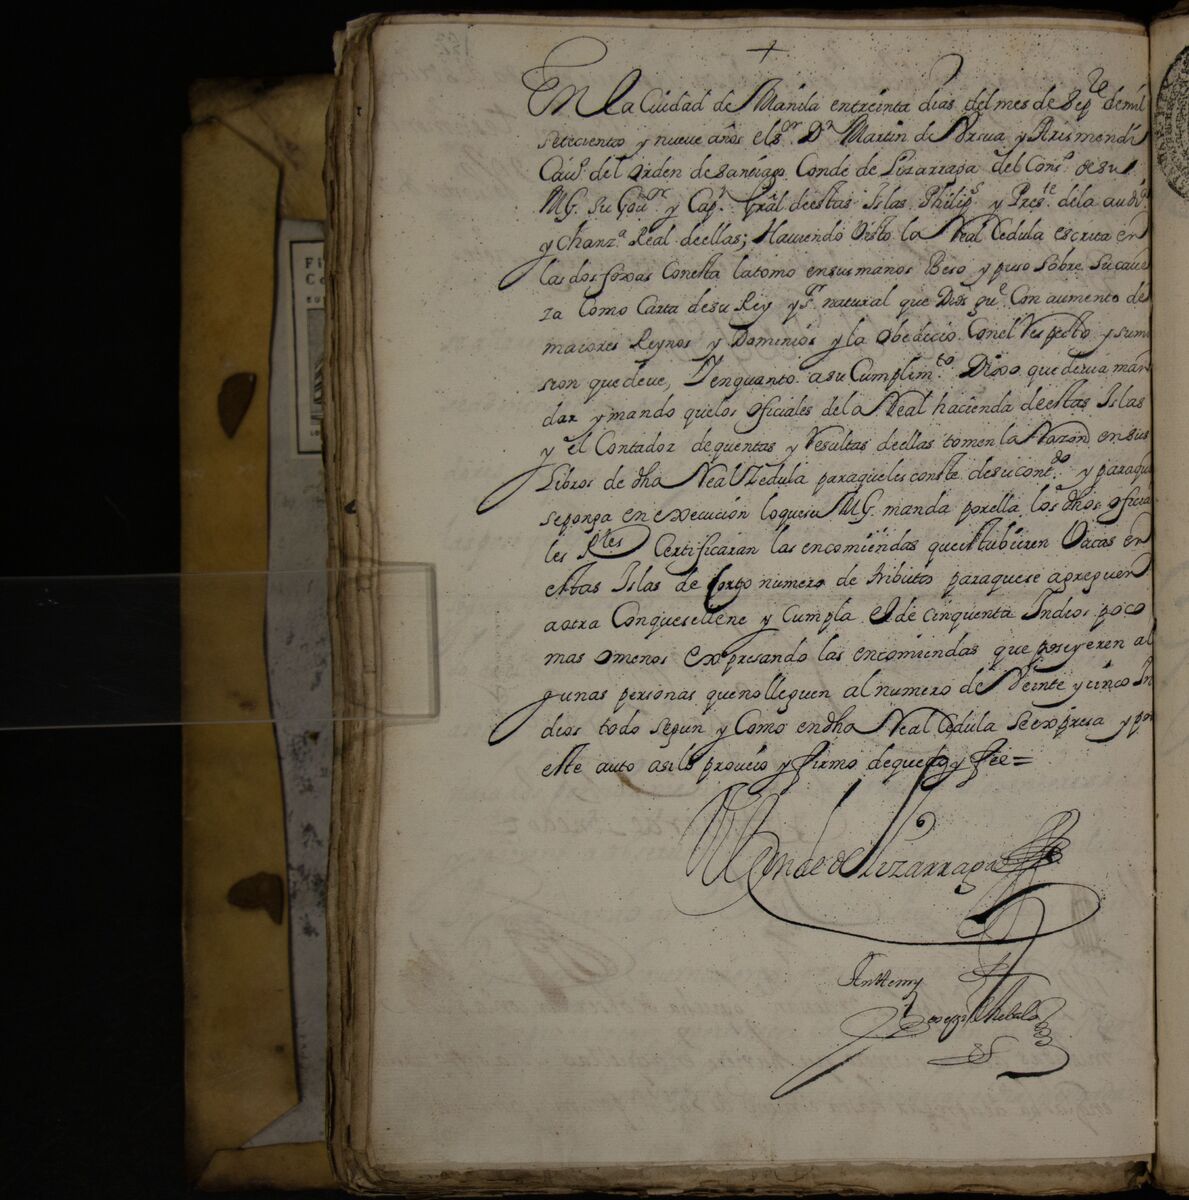 +
En la Ciudad de Manila entreinta dias del mes de Sepe de mil
setecientos y nueve años el sor Dn Martin de Vrsua y Arismendi
Cauo del orden de Santiago Conde de Lizarraga del Conso de su
MG. su Gour y Capn Gral de estas Islas Philips y Preste de la audia
y Chanza Real de ellas; Hauiendo Visto la Real Cedula escrita en
las dos foxas Con esta la tomo en sus manos Beso y puso sobre su caue
za Como Carta de su Rey y Sr natural que Dios gue Con aumento de
maiores Reynos y Dominios y la obedecio Con el Respecto y sumi
sion que deue, Y en quanto a su Cumplimto Dixo que deuia man
dar y mando que los oficiales de la Real hacienda de estas Islas
y el Contador de quentas y Resultas de ellas tomen la Razon en sus
Libros de dha Real Zedula para que les conste de su contdo y para que
se ponga en execucion lo que su MG. manda por ella los dhos oficia
les Rles Certificaran las encomiendas que estubieren Vacas en
estas Islas de Corto numero de tributos para que se agreguen
a otra Con que se llene y Cumpla el de cinquenta Indios poco
mas o menos expresando las encomiendas que poseyeren al
gunas personas que no lleguen al numero de Veinte y cinco In
dios todo segun y Como en dha Real Cedula se expresa y por
este auto asi lo proueio y firmo de que doy fee=
Conde de Lizarraga
Ante my